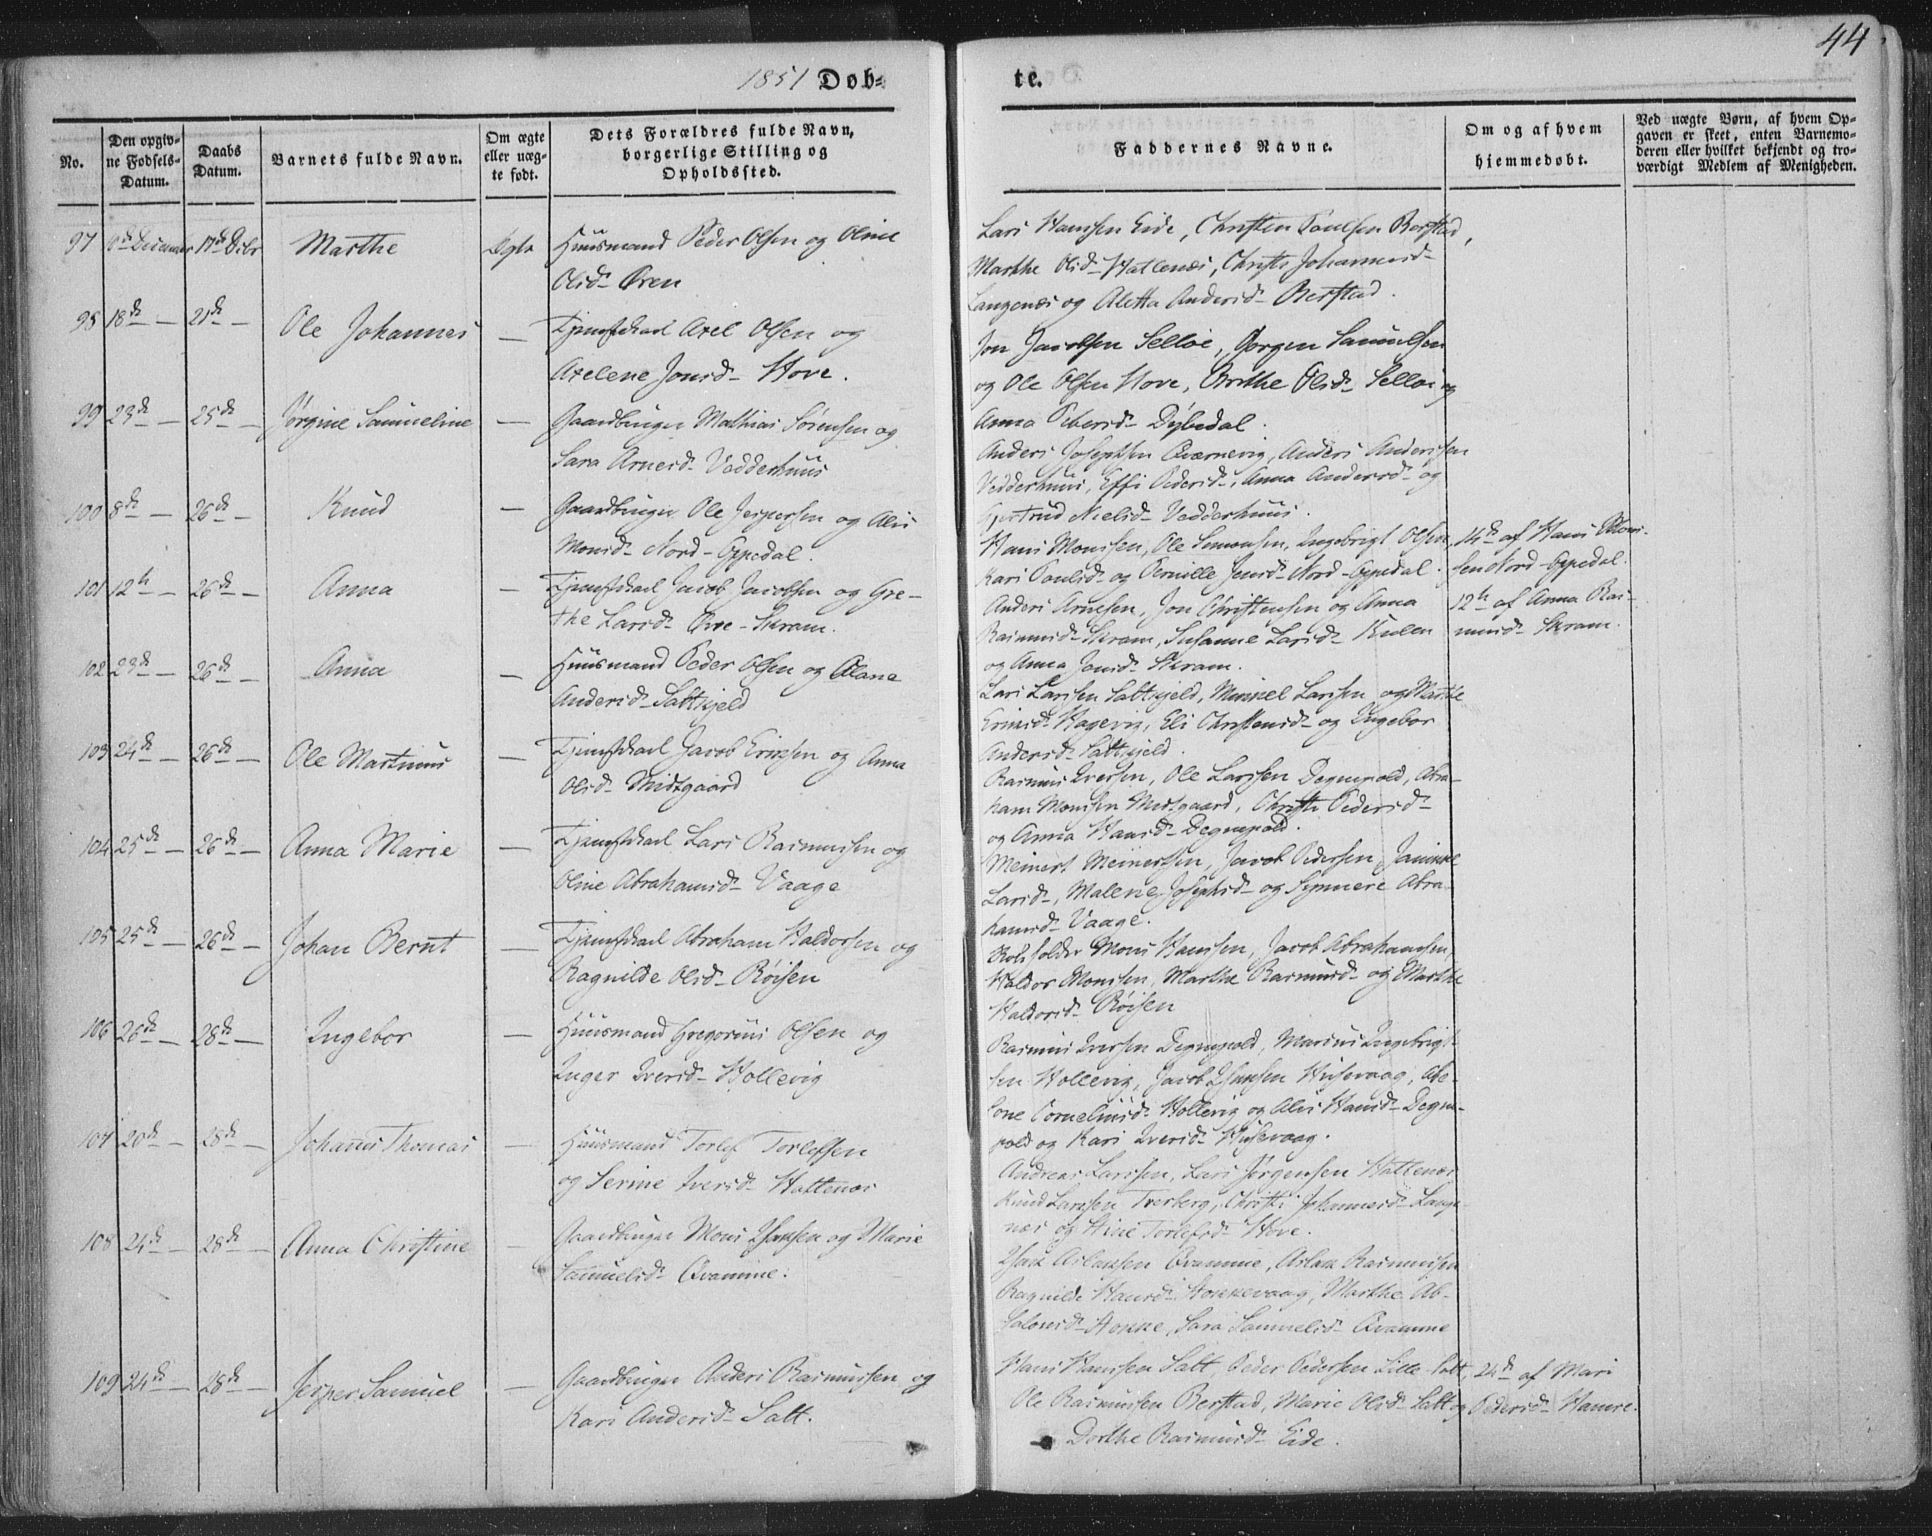 44
1851 Døb-
te.
No.
Den opgiv-
ne Fødsels-
Datum.
Daabs
Datum.
Barnets fulde Navn.
Om ægte
eller uæg-
te født.
Dets Forældres fulde Navn,
borgerlige Stilling og
Opholdssted.
Faddernes Navne.
Om og af hvem
hjemmedøbt.
Ved uægte Børn, af hvem Op-
gaven er skeet, enten Barnemo-
deren eller hvilket bekjendt og tro-
værdigt Medlem af Menigheden.
97 Marthe Huusmand Peder Olsen og Oline
Olsd-
Lars Hanssen Eide, Christen Poulsen Berstad,
Marthe Olsd- Hatlenæs, Johannesd-
Langenæs og Aletta Andersd- Berstad.
98 18de 21de Ole Johannes — Tjenestekarl Axel Olsen og
Axelene Jonsd- Hove.
Jon Jacobsen Selløe, Jørgen Samuelsen
og Ole Olsen Hove, Birthe Olsd- Selløe og
Anna Pedersd- Dybedal.
99 23de 25de Jørgine Samueline — Gaardbruger Mathias Sørensen og
Sara Arnesd- Vedderhuus
Anders Josephsen Qværnevig, Anders Anderssen
Vedderhuus, Pedersd-, Anna Andersd- og
Gjertrud Nielsd- Vedderhuus.
100 8de 26de Knud — Gaardbruger Ole Jespersen og Alis
Monsd- Nord-Oppedal.
Hans Monssen, Ole Simonsen, Ingebrigt Olsen,
Kari Poulsd- og Pernille Jensd- Nord-Oppedal.
14de af Hans Mons-
sen Nord-Oppedal.
101 12te 26de Anna — Tjenestekarl Jacob Jacobsen og Gre-
the Larsd- Skram.
Anders Arnesen, Jon Christensen og Anna
Rasmusd- Skram, Susanne Larsd-
og Anna Jonsd- Skram.
12te af Anna Ras-
musd- Skram.
102 23de 26de Anna — Huusmand Peder Olsen og
Andersd- Saltskjeld
Lars Larssen Saltskjeld, Larssen og Marthe
Ericsd- Hagevig, Eli Christensd- og Ingebor
Andersd- Saltskjeld.
103 24de 26de Ole Martinus — Tjenestekarl Jacob Ericksen og Anna
Olsd- Midtgaard
Rasmus Iversen, Ole Larssen Degnepold, Abra-
ham Monssen Midtgaard, Pedersd-
og Anna Hansd- Degnepold.
104 25de 26de Anna Marie — Tjenestekarl Lars Rasmussen og
Oline Abrahamsd- Vaage
Meinert Meinertsen, Jacob Pedersen,
Larsd-, Malene Josephsd- og Abra-
hamsd- Vaage.
105 25de 26de Johan Bernt — Tjenestekarl Abraham Haldorsen og
Ragnilde Olsd- Røisen
Mons Hanssen, Jacob Abrahamsen,
Haldor Monssen, Marthe Rasmusd- og Marthe
Haldorsd- Røisen
106 26de 28de Ingebor — Huusmand Gregorius Olsen og
Inger Iversd- Hollevig
Rasmus Iversen Degnepold, Marius Ingebrigt-
sen Hollevig, Jacob Husevaag, Abe-
lone Corneliusd- Hollevig og Alis Hansd- Degne-
pold og Kari Iversd- Husevaag.
107 20de 28de Johans Thomas — Huusmand Torlef Torlefsen
og Serine Iversd- Hatlenæs
Andreas Larssen, Lars Jørgensen Hatlenæs
Knud Larssen Tverberg, Johannesd- Lange-
næs og Stine Torlefsd- Hove.
108 24de 28de Anna Christine — Gaardbruger Mons Isaksen og Marie
Samuelsd- Qvamme.
Isak Aslaksen Qvamme, Aslak Rasmussen
Ragnilde Hansd- Stokkevaag, Marthe Ab-
salonsd- Stokke, Sara Samuelsd- Qvamme
109 24de 28de Jesper Samuel — Gaardbruger Anders Rasmussen og
Kari Andersd- Salt.
Hans Hanssen Salt, Peder Pedersen Lille-Salt,
Ole Rasmussen Berstad, Marie Olsd- Salt og
Dorthe Rasmusd- Eide.
24de af Mari
Pedersd- Hamre.